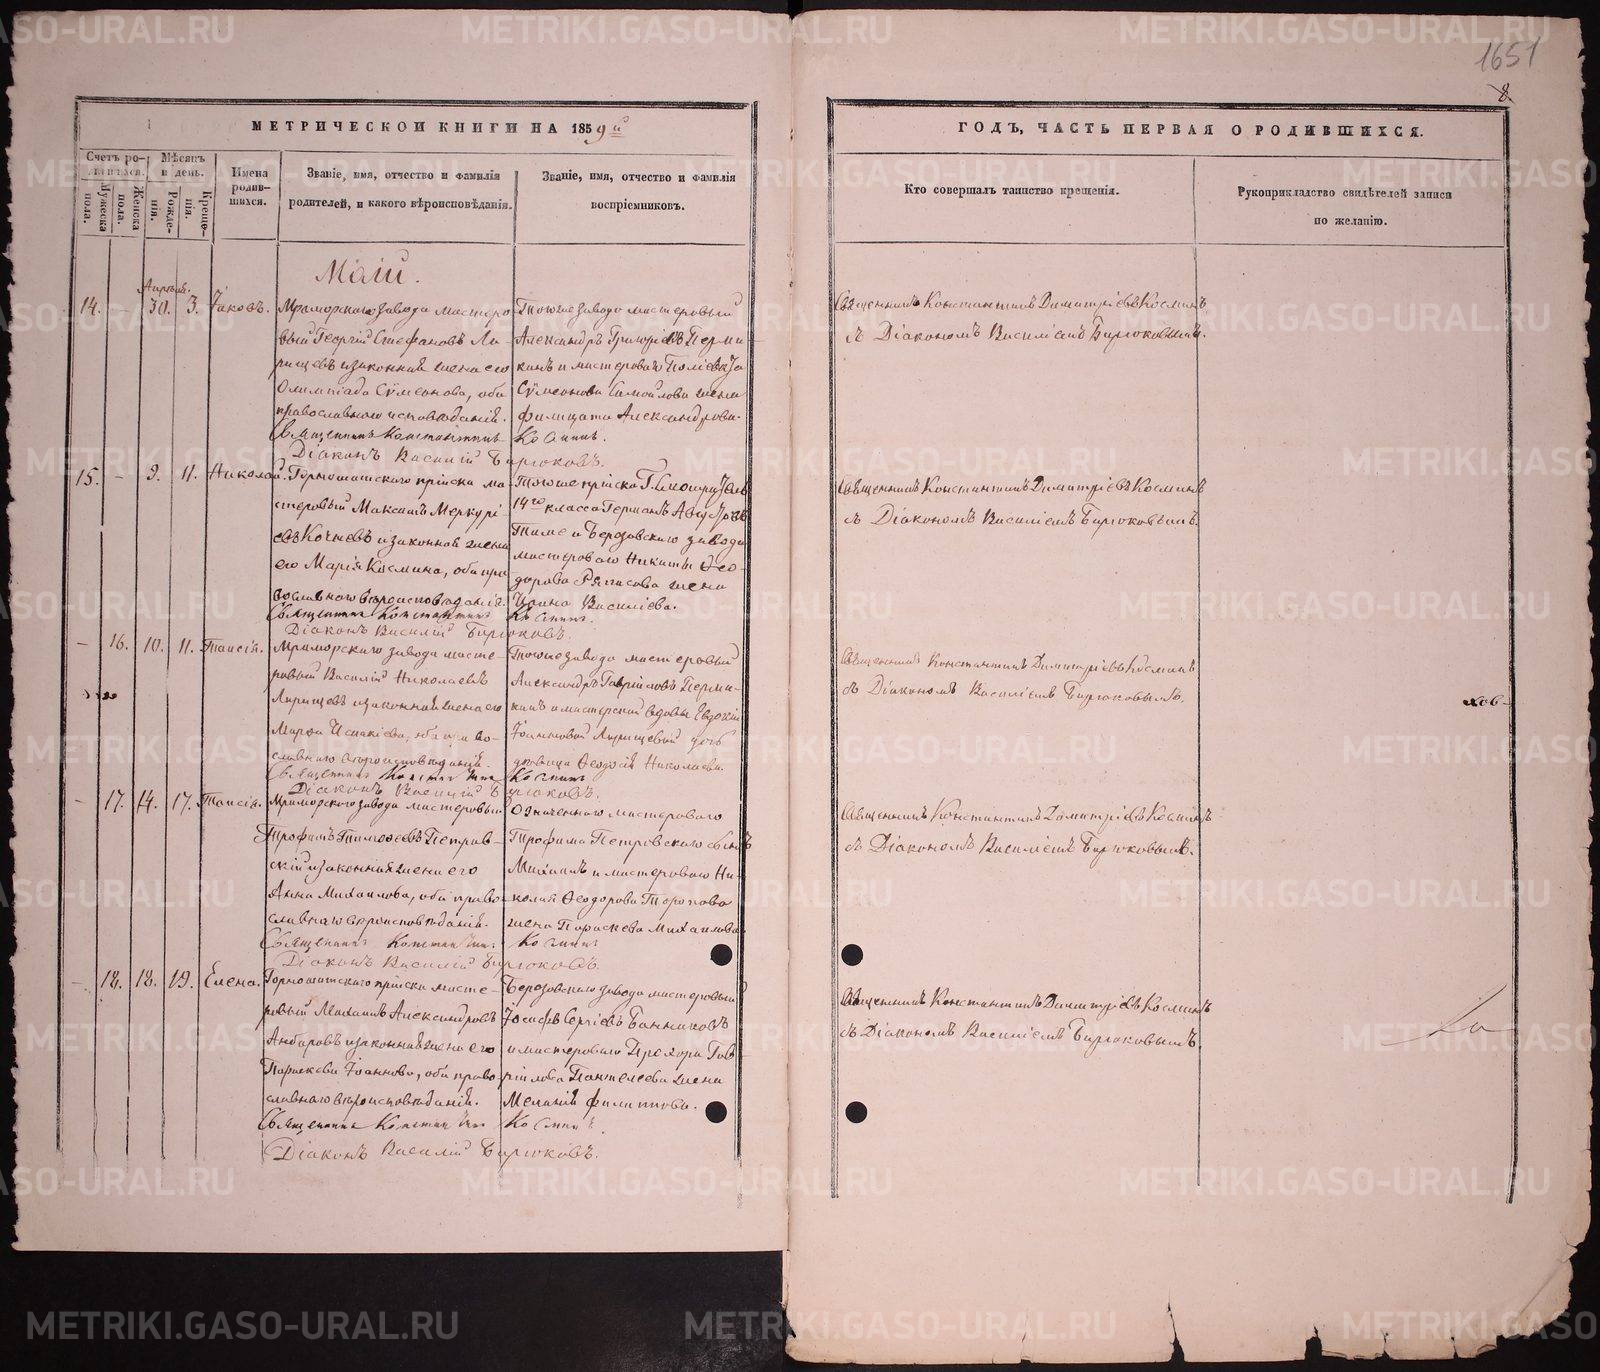 1651
8.
МЕТРИЧЕСКОЙ КНИГИ НА 1859й
ГОДЪ, ЧАСТЬ ПЕРВАЯ О РОДИВШИХСЯ.
Счетъ родившихся.
Мужеска пола.
Женска пола.
Мѣсяцъ и день.
Рожденія.
Крещенія.
Имена родившихся.
Званіе, имя, отчество и фамилія
родителей, и какого вѣроисповѣданія.
Званіе, имя, отчество и фамилія
воспріемниковъ.
Кто совершалъ таинство крещенія.
Рукоприкладство свидѣтелей записи
по желанію.
Маій.
14. – Апрѣля. 30. 3. Іаковъ.
Мраморскаго завода мастеро
вый Георгій Стефановъ Ла
рищевъ и законная жена его
Олимпіада Сѵмеонова, оба
православнаго исповѣданія.
Священникъ Константинъ Косминъ.
Діаконъ Василій Бирюковъ.
Тогоже завода мастеровый
Александръ Григоріевъ Перми
кинъ и мастероваго
Сѵмеонова Самойлова жена
Филицата Александрова.
Священникъ Константинъ Димитріевъ Косминъ
съ Діакономъ Василіемъ Бирюковымъ.
15. – 9. 11. Николай.
Горнощитскаго пріиска ма
стеровый Максимъ Меркурі
евъ Кочневъ и законная жена
его Марія Космина, оба пра
вославнаго вѣроисповѣданія.
Священникъ Константинъ Косминъ.
Діаконъ Василій Бирюковъ.
Тогоже пріиска Г. Смотритель
14го класса Германъ
Тиме и Березовскаго завода
мастероваго Никиты Ѳео-
дорова жена
Ирина Василіева.
Священникъ Константинъ Димитріевъ Косминъ
съ Діакономъ Василіемъ Бирюковымъ.
– 16. 10. 11. Таисія.
Мраморскаго завода масте-
ровый Василій Николаевъ
Ларищевъ и законная жена его
Марѳа Исакіева, оба право-
славнаго вѣроисповѣданія.
Священникъ Константинъ Косминъ
Діаконъ Василій Бирюковъ.
Тогоже завода мастеровый
Александръ Гавріиловъ Перми-
кинъ и мастерской вдовы Евдокіи
Іоанновой Ларищевой дочь
дѣвица Ѳеодосія Николаева.
Священникъ Константинъ Димитріевъ Косминъ
съ Діакономъ Василіемъ Бирюковымъ.
хов-
– 17. 14. 17. Таисія.
Мраморскаго завода мастеровый
Трофимъ Тимоѳеевъ Петров-
скій и законная жена его
Анна Михаилова, оба право-
славнаго вѣроисповѣданія.
Священникъ Константинъ Косминъ
Діаконъ Василій Бирюковъ.
Означеннаго мастероваго
Трофима Петровскаго сынъ
Михаилъ и мастероваго Ни-
колая Ѳеодорова Торопова
жена Параскева Михаилова.
Священникъ Константинъ Димитріевъ Косминъ
съ Діакономъ Василіемъ Бирюковымъ.
– 18. 18. 19. Елена.
Горнощитскаго пріиска масте-
ровый Михаилъ Александровъ
Анбаровъ и законная жена его
Параскева Іоаннова, оба право
славнаго вѣроисповѣданія.
Священникъ Константинъ Косминъ.
Діаконъ Василій Бирюковъ.
Березовскаго завода мастеровый
Іосифъ Сергіевъ Банниковъ
и мастероваго Прохора Гав-
ріилова Пантелеева жена
Меланія Филиппова.
Священникъ Константинъ Димитріевъ Косминъ
съ Діакономъ Василіемъ Бирюковымъ.
METRIKI.GASO-URAL.RU